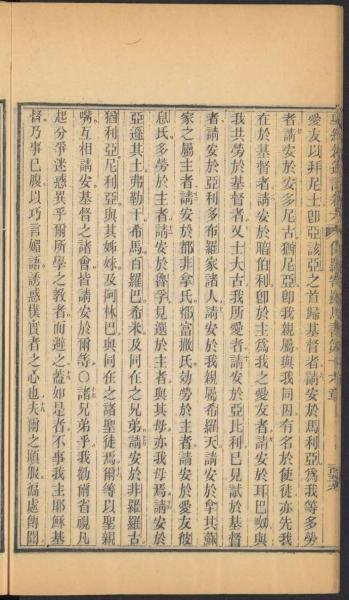 愛友以拜尼士卽亞該亞之首歸基督者請安於馬利亞爲我等多勞
者請安於安多尼古猶尼亞卽我親屬與我同囚有名於使徒亦先我
在於基督者請安於暗伯利卽於主爲我之愛友者請安於耳巴奴與
我共勞於基督者又士大古我所愛者請安於亞比利已見試於基督
者請安於亞利多布羅家諸人請安於我親屬希羅天請安於拿其蘇
家之屬主者請安於都非拿氏都富撒氏効勞於主者請安於愛友彼
息氏多勞於主者請安於魯孚見選於主者與其母亦我母焉請安於
亞遜其土弗勒干希馬百羅巴希米及同在之兄弟請安於非羅羅古
猶利亞尼利亞與其姊妹及阿林巴與同在之諸聖徒焉爾等以聖親
嘴互相請安基督之諸會皆請安於爾等〇諸兄弟乎我勸爾省視凡
起分爭迷惑異乎爾所學之教者而避之蓋如是者不事我主耶穌基
督乃事已腹以巧言媚語誘惑樸實者之心也夫爾之順服徧處傳聞